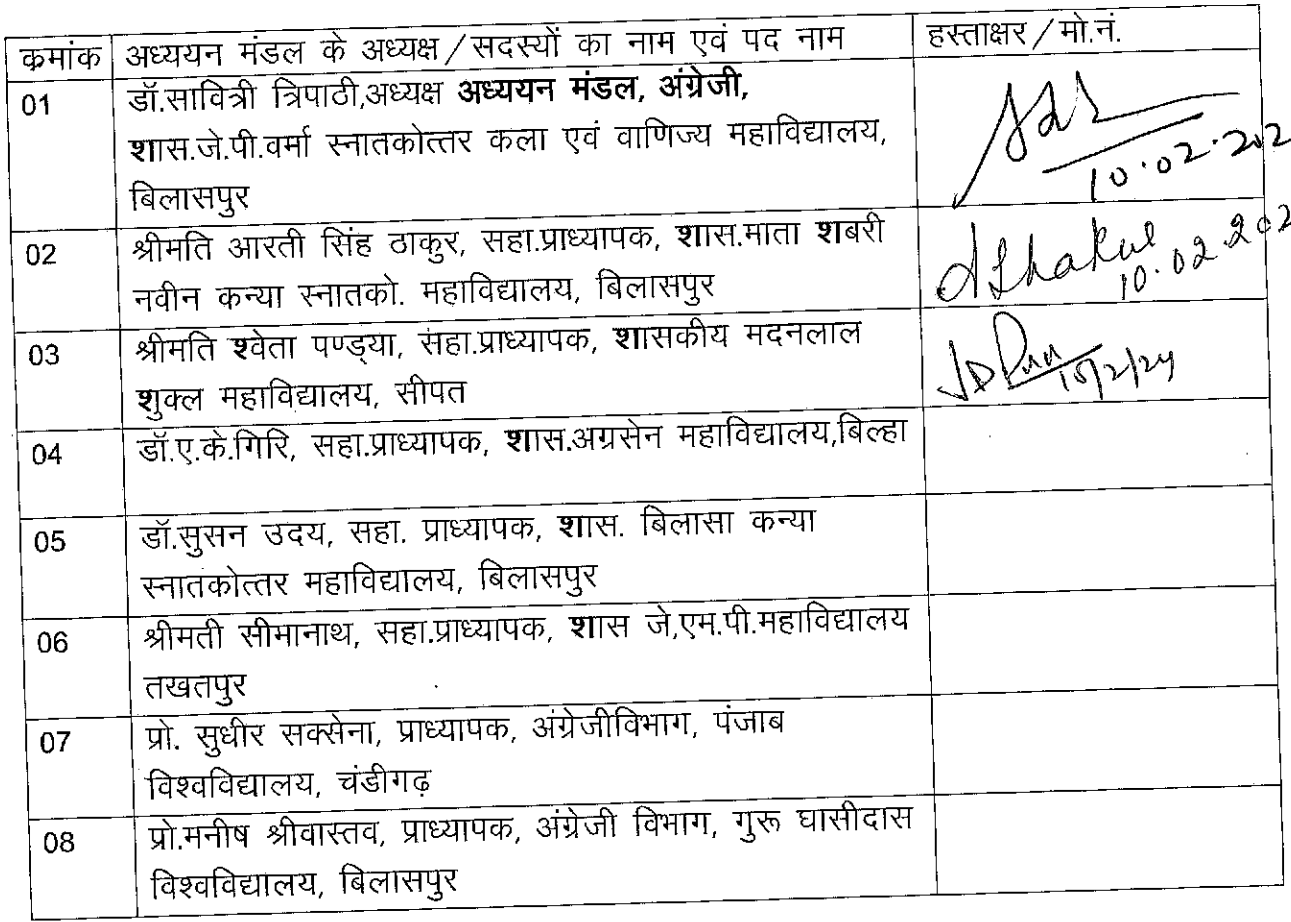 क्रमांक अध्ययन मंडल के अध्यक्ष/सदस्यों का नाम एवं पद नाम हस्ताक्षर/मो.नं.
01 डॉ.सावित्री त्रिपाठी,अध्यक्ष अध्ययन मंडल, अंग्रेजी,
शास.जे.पी.वर्मा स्नातकोत्तर कला एवं वाणिज्य महाविद्यालय,
बिलासपुर
10.02.202
02 श्रीमति आरती सिंह ठाकुर, सहा.प्राध्यापक, शास.माता शबरी
नवीन कन्या स्नातको. महाविद्यालय, बिलासपुर
10.02.202
03 श्रीमति श्वेता पण्ड्या, सहा.प्राध्यापक, शासकीय मदनलाल
शुक्ल महाविद्यालय, सीपत
04 डॉ.ए.के.गिरि, सहा.प्राध्यापक, शास.अग्रसेन महाविद्यालय,बिल्हा
05 डॉ.सुसन उदय, सहा. प्राध्यापक, शास. बिलासा कन्या
स्नातकोत्तर महाविद्यालय, बिलासपुर
06 श्रीमती सीमानाथ, सहा.प्राध्यापक, शास जे,एम.पी.महाविद्यालय
तखतपुर
07 प्रो. सुधीर सक्सेना, प्राध्यापक, अंग्रेजीविभाग, पंजाब
विश्वविद्यालय, चंडीगढ़
08 प्रो.मनीष श्रीवास्तव, प्राध्यापक, अंग्रेजी विभाग, गुरू घासीदास
विश्वविद्यालय, बिलासपुर